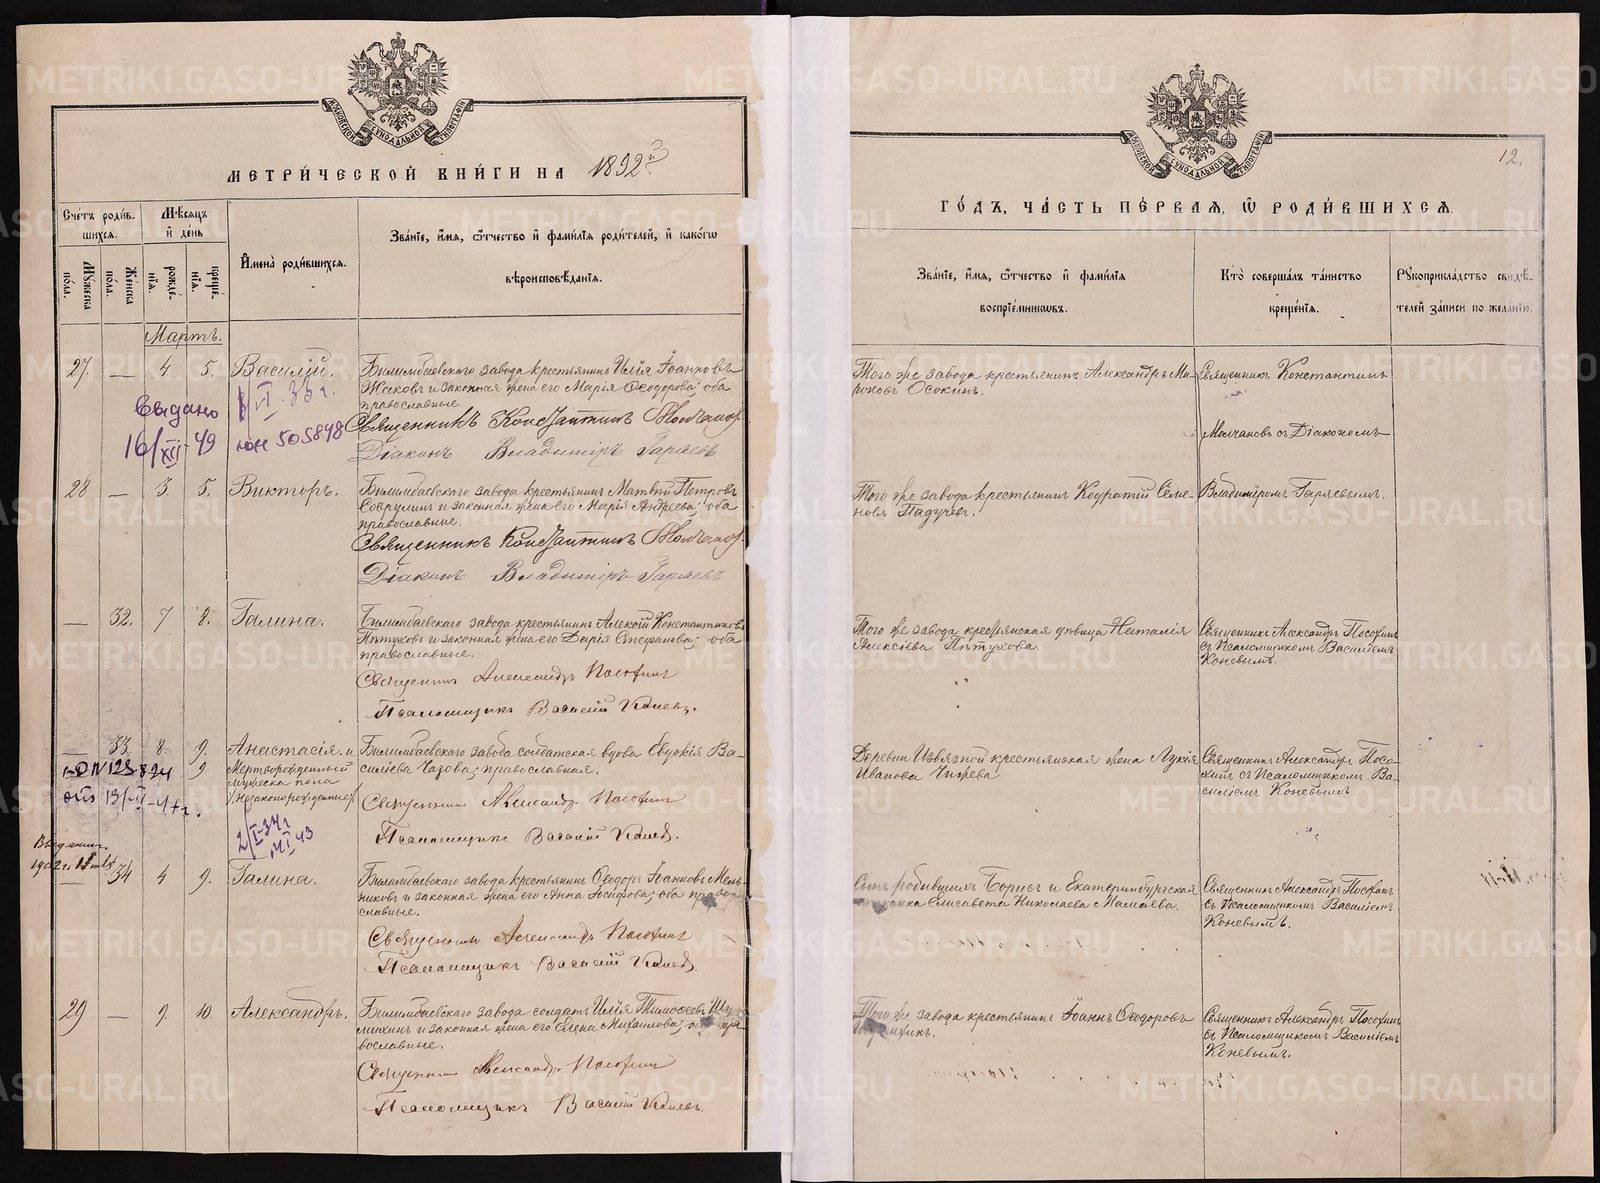 МОСКОВСКОЙ СѴНОДАЛЬНОЙ ТИПОГРАФІИ
МЕТРИ́ЧЕСКОЙ КНИ́ГИ НА 1892 й
Сче́тъ роди́в-
шихся.
Мѣ́сяцъ
и҆ де́нь
Мꙋжеска
по́ла.
Же́нска
по́ла.
рожде́-
нїѧ.
креще́-
нїѧ.
И҆мена̀ роди́вшихсѧ.
Зва́нїе, и҆́мѧ, ѻ҆́тчество и҆ фами́лїѧ роди́телей, и҆ како́гѡ
вѣроисповѣ́данїѧ.
Мартъ.
27. — 4 5. Василій.
Билимбаевскаго завода крестьянинъ Илія Іоанновъ
Жаковъ и законная жена его Марія Ѳеодорова; оба
православные.
Священникъ Константинъ Молчановъ
Діаконъ Владиміръ Гаряевъ
Выдано
16/XII 49
юн 505848
28 — 3. 5. Викторъ.
Билимбаевскаго завода крестьянинъ Матвѣй Петровъ
и законная жена его Марія Андреева; оба
православные.
Священникъ Константинъ Молчановъ
Діаконъ Владиміръ Гаряевъ
— 32. 7 8. Галина.
Билимбаевскаго завода крестьянинъ Алексій Константиновъ
Пѣтуховъ и законная жена его Дарія Стефанова; оба
православные.
Священникъ Александръ Посохинъ
Псаломщикъ Василій Коневъ.
— 33. 8. 9. Анастасія. и
9 Мертворожденный
мужеска пола
/Незаконорожденные/
Билимбаевскаго завода солдатская вдова Евдокія Ва-
силіева Чазова; православная.
Священникъ Александръ Посохинъ
Псаломщикъ Василій Коневъ.
2/I-34 г
— 34 4 9. Галина.
Билимбаевскаго завода крестьянинъ Ѳеодоръ Іоанновъ Мель-
никовъ и законная жена его Анна Іосифова; оба право-
славные.
Священникъ Александръ Посохинъ
Псаломщикъ Василій Коневъ
29 — 9. 10. Александръ.
Билимбаевскаго завода солдатъ Илія Тимоѳеевъ
и законная жена его Елена Михаилова; оба пра
вославные.
Священникъ Александръ Посохинъ
Псаломщикъ Василій Коневъ
МОСКОВСКОЙ СѴНОДАЛЬНОЙ ТИПОГРАФІИ
12.
ГО́ДЪ, ЧА́СТЬ ПЕ́РВАѦ, Ѡ҆ РОДИ́ВШИХСѦ.
Зва́нїе, и҆́мѧ, ѻ҆́тчество и҆ фами́лїѧ
воспрїе́мникѡвъ.
Кто̀ соверша́лъ та́инство
креще́нїѧ.
Рꙋкоприкла́дство свидѣ́-
телей за́писи по жела́нїю.
Того же завода крестьянинъ Александръ Ми-
роновъ Осокинъ.
Священникъ Константинъ
Молчановъ съ Діакономъ
Того же завода крестьянинъ Кодратій Семе-
новъ Падучевъ.
Владиміромъ Гаряевымъ.
Того же завода крестьянская дѣвица Наталія
Алексіева Пѣтухова.
Священникъ Александръ Посохинъ
съ Псаломщикомъ Василіемъ
Коневымъ.
Деревни Извѣзной крестьянская жена Лукія
Иванова Чижева
Священникъ Александръ Посо-
хинъ съ Псаломщикомъ Ва-
силіемъ Коневымъ.
Борисъ и Екатеринбургская
Елисавета Николаева Мамаева.
Священникъ Александръ Посохинъ
съ Псаломщикомъ Василіемъ
Коневымъ.
Того же завода крестьянинъ Іоаннъ Ѳеодоровъ
Священникъ Александръ Посохинъ
съ Псаломщикомъ Василіемъ
Коневымъ.
METRIKI.GASO-URAL.RU